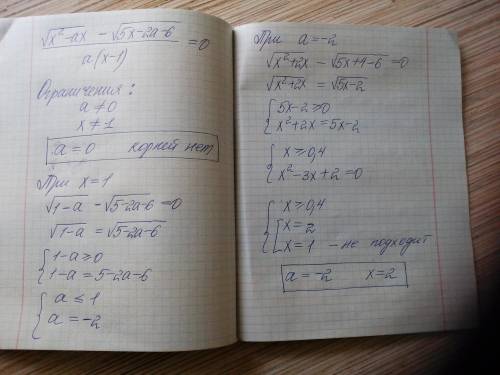 √x²-ax - √5x-2a-6
a(x-1)
=0
Ограничения:
a≠0
x≠1
a=0 корней нет
При x=1
√1-a - √5-2a-6 =0
√1-a = √5-2a-6
{ 1-a≥0
1-a=5-2a-6
{ a≤1
a=-2
При a=-2
√x²+2x - √5x+4-6 =0
√x²+2x = √5x-2
{ 5x-2≥0
x²+2x=5x-2
{ x≥0,4
x²-3x+2=0
{ x≥0,4
[ x=2
x=1 - не подходит
a=-2 x=2